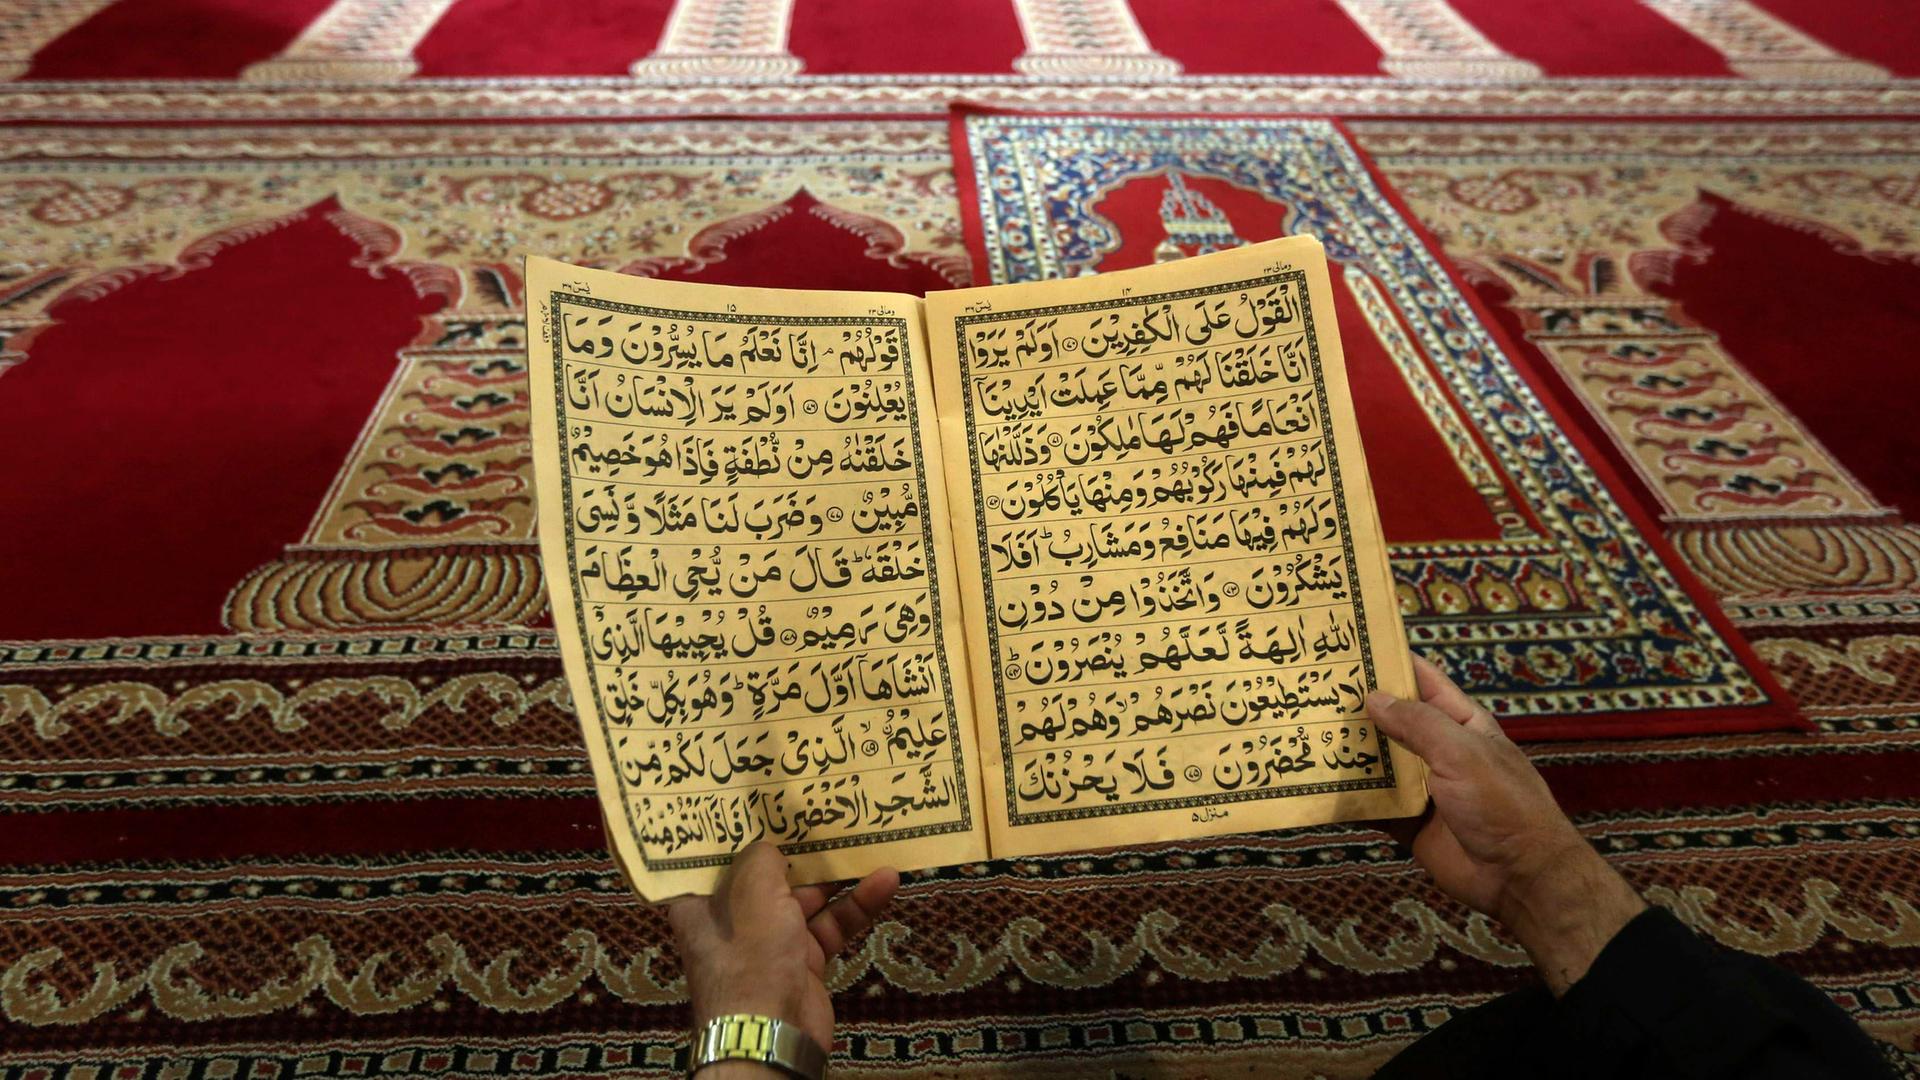 ومالی ٢٣
١٤
یٰسٓ ٣٦
الْقَوْلُ عَلَى الْكٰفِرِيْنَ ﴿٧٠﴾ اَوَلَمْ يَرَوْا
اَنَّا خَلَقْنَا لَهُمْ مِّمَّا عَمِلَتْ اَيْدِيْنَاۤ
اَنْعَامًا فَهُمْ لَهَا مٰلِكُوْنَ ﴿٧١﴾ وَذَلَّلْنٰهَا
لَهُمْ فَمِنْهَا رَكُوْبُهُمْ وَمِنْهَا يَاْكُلُوْنَ ﴿٧٢﴾
وَلَهُمْ فِيْهَا مَنَافِعُ وَمَشَارِبُ ؕ اَفَلَا
يَشْكُرُوْنَ ﴿٧٣﴾ وَاتَّخَذُوْا مِنْ دُوْنِ
اللّٰهِ اٰلِهَةً لَّعَلَّهُمْ يُنْصَرُوْنَ ﴿٧٤﴾ؕ
لَا يَسْتَطِيْعُوْنَ نَصْرَهُمْ ۙ وَهُمْ لَهُمْ
جُنْدٌ مُّحْضَرُوْنَ ﴿٧٥﴾ فَلَا يَحْزُنْكَ
منزل ٥
ومالی ٢٣
١٥
یٰسٓ ٣٦
قَوْلُهُمْ ۘ اِنَّا نَعْلَمُ مَا يُسِرُّوْنَ وَمَا
يُعْلِنُوْنَ ﴿٧٦﴾ اَوَلَمْ يَرَ الْاِنْسَانُ اَنَّا
خَلَقْنٰهُ مِنْ نُّطْفَةٍ فَاِذَا هُوَ خَصِيْمٌ
مُّبِيْنٌ ﴿٧٧﴾ وَضَرَبَ لَنَا مَثَلًا وَّنَسِیَ
خَلْقَهٗ ؕ قَالَ مَنْ يُّحْیِ الْعِظَامَ
وَهِیَ رَمِيْمٌ ﴿٧٨﴾ قُلْ يُحْيِيْهَا الَّذِیْۤ
اَنْشَاَهَاۤ اَوَّلَ مَرَّةٍ ؕ وَهُوَ بِكُلِّ خَلْقٍ
عَلِيْمُ ۙ﴿٧٩﴾ الَّذِیْ جَعَلَ لَكُمْ مِّنَ
الشَّجَرِ الْاَخْضَرِ نَارًا فَاِذَاۤ اَنْتُمْ مِّنْهُ